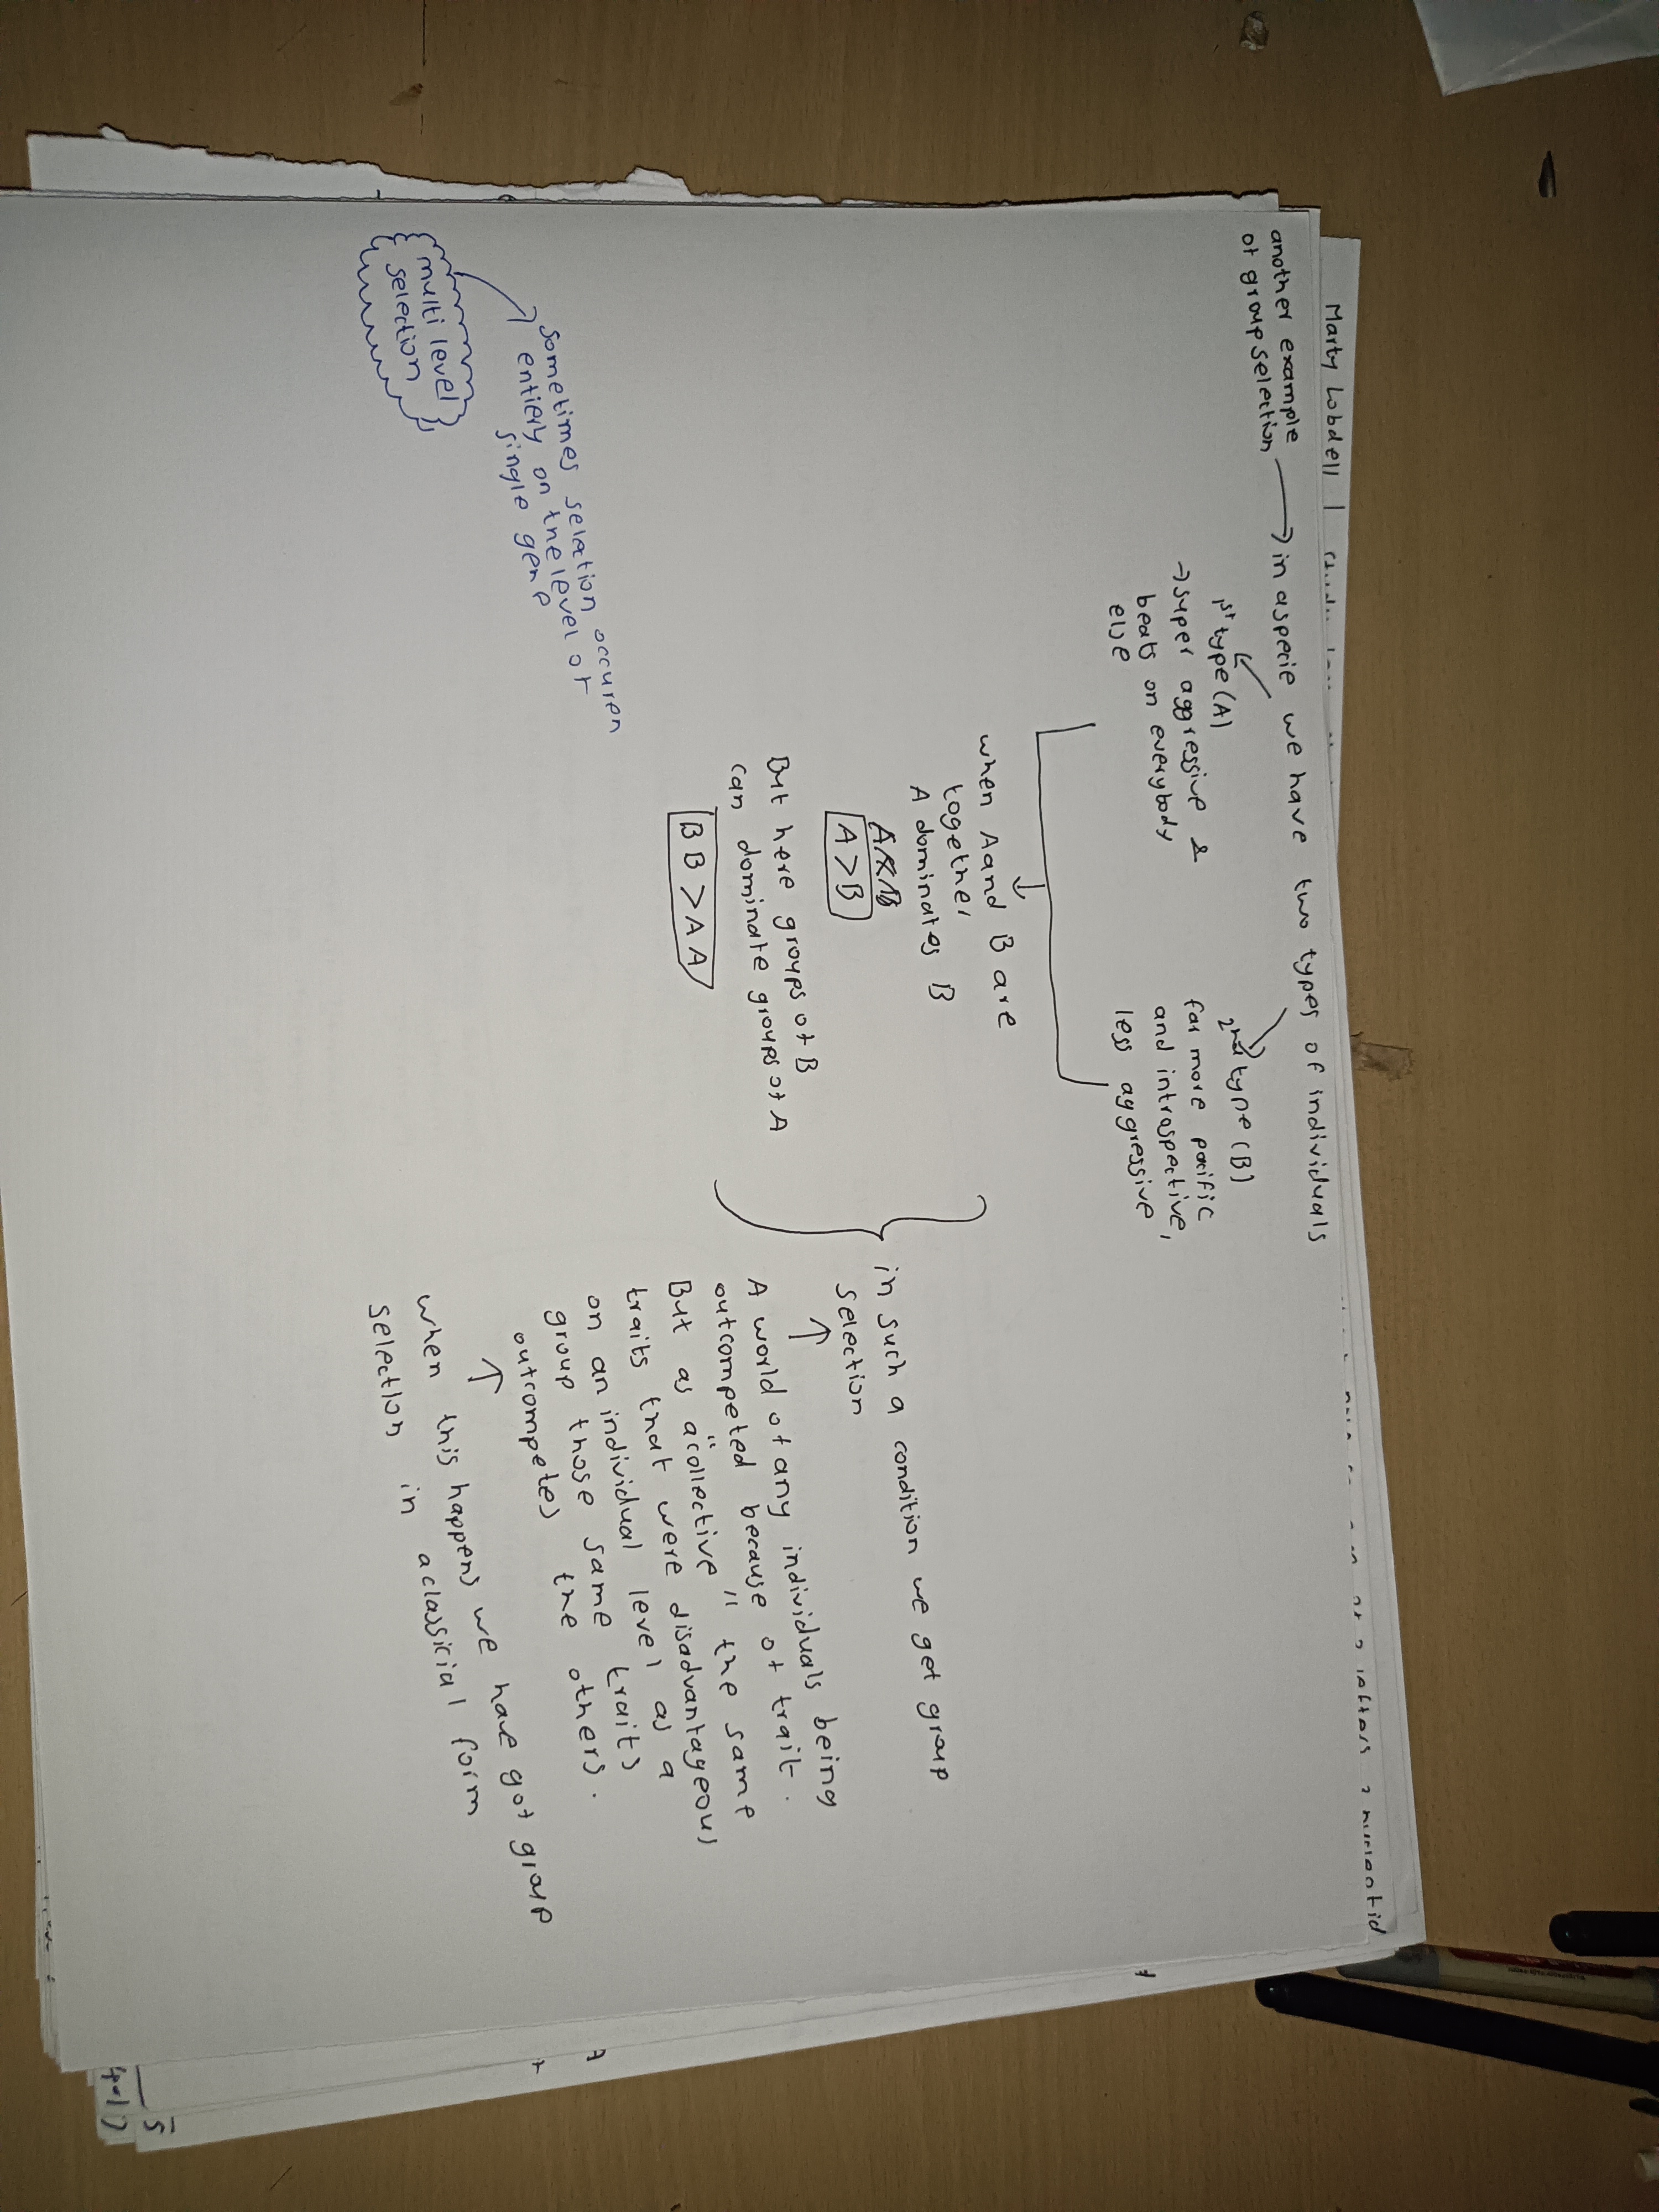 Marty Lobdell |
another example
of group selection → in a specie we have two types of individuals
1st type (A)
→ super aggressive &
beats on everybody
else
2nd type (B)
far more pacific
and intraspective,
less aggressive
when A and B are
together,
A dominates B
A > B
But here groups of B
can dominate groups of A
BB > AA
in such a condition we get group
selection
↑
A world of any individuals being
outcompeted because of trait.
But as a "collective" the same
traits that were disadvantageous
on an individual level as a
group those same traits
outcompetes the others.
↑
when this happens we have got group
selection in a classicial form
sometimes selection occuren
entierly on the level of
single gene
multi level
selection